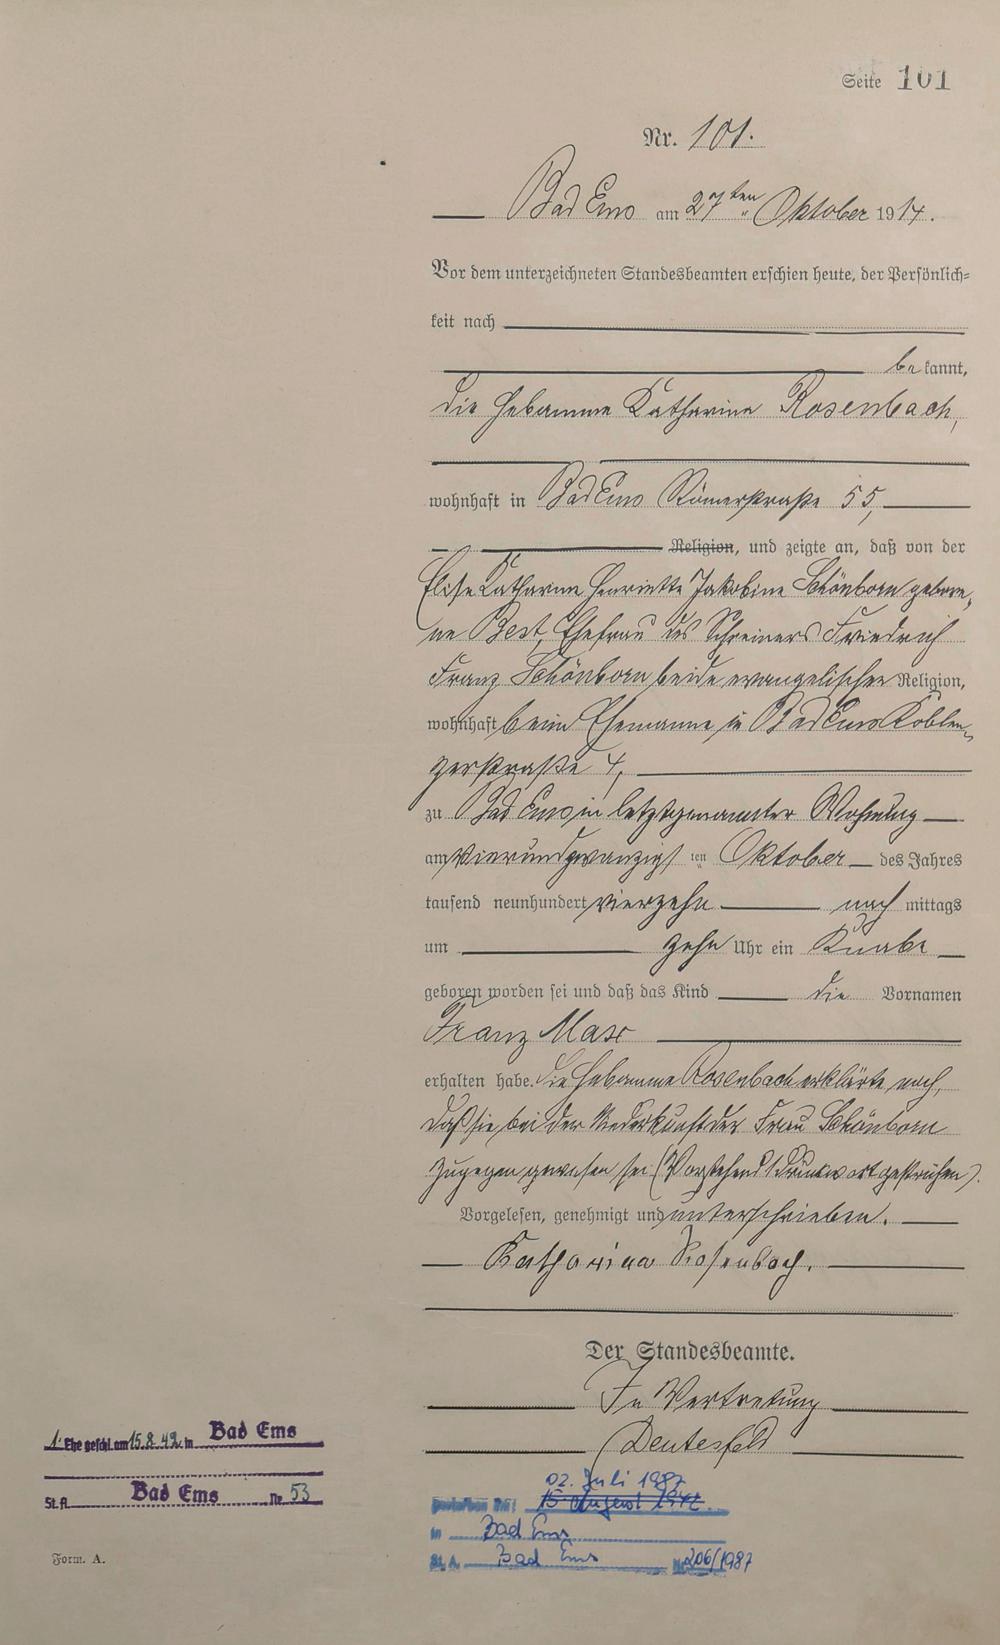 Seite 101
Nr. 101.
Bad Ems am 27ten Oktober 1914.
Vor dem unterzeichneten Standesbeamten erschien heute, der Persönlich=
keit nach
be kannt,
die Hebamme Katharina Rosenbach,
wohnhaft in Bad Ems Römerstraße 55,
Religion, und zeigte an, daß von der
Elise Katharina Henriette Jakobine Schönborn gebore-
ne Best, Ehefrau des Schreiners Friedrich
Franz Schönborn beide evangelischer Religion,
wohnhaft beim Ehemanne in Bad Ems Koblen-
zerstraße 4,
zu Bad Ems in letztgenannter Wohnung
am vierundzwanzigs ten Oktober des Jahres
tausend neunhundert vierzehn nach mittags
um zehn Uhr ein Knabe
geboren worden sei und daß das Kind die Vornamen
Franz Max
erhalten habe. Die Hebamme Rosenbach erklärte noch,
daß sie bei der Niederkunft der Frau Schönborn
zugegen gewesen sei (Vorstehend 1 Druckwort gestrichen).
Vorgelesen, genehmigt und unterschrieben.
Katharina Rosenbach.
Der Standesbeamte.
In Vertretung
Deutesfeld
1. Ehe geschl. am 15.8.42 in Bad Ems
St.A. Bad Ems Nr. 53
02. Juli 1987
15. August 1942
in Bad Ems
St. A. Bad Ems Nr. 206/1987
Form. A.